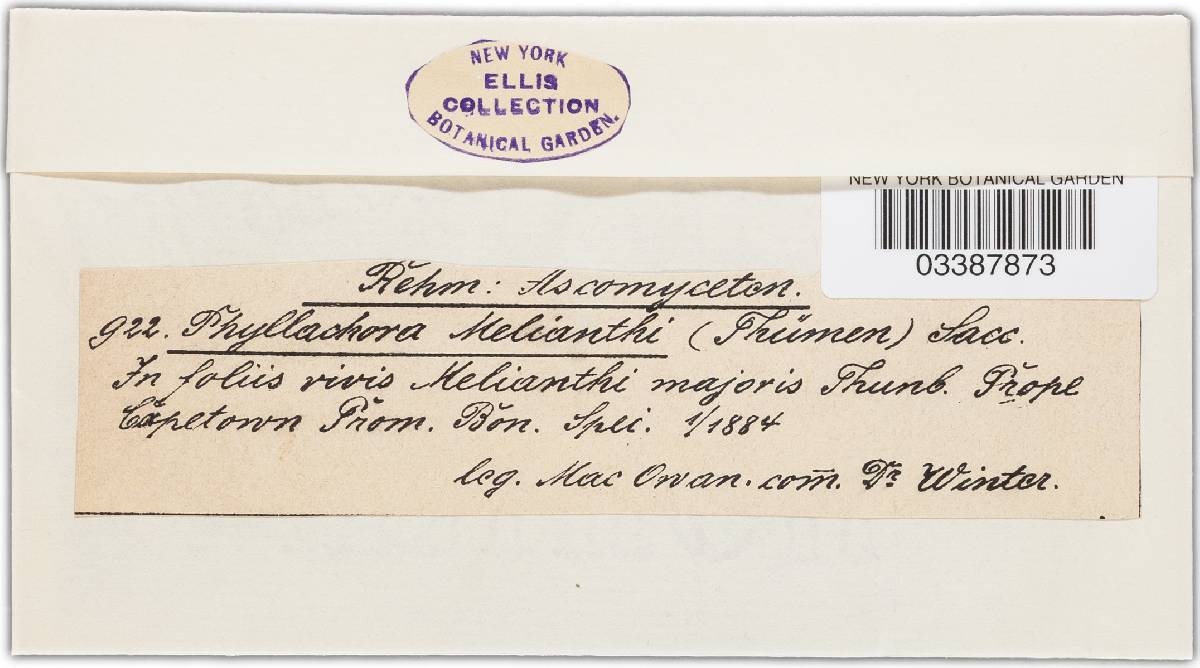 NEW YORK
ELLIS
COLLECTION
BOTANICAL GARDEN.
NEW YORK BOTANICAL GARDEN
03387873
Rehm: Ascomyceten.
922. Phyllachora Melianthi (Thümen) Sacc.
In foliis vivis Melianthi majoris Thunb. Prope
Capetown Prom. Bon. Spei. 1/1884
leg. Mac Owan. com̄. Dr. Winter.